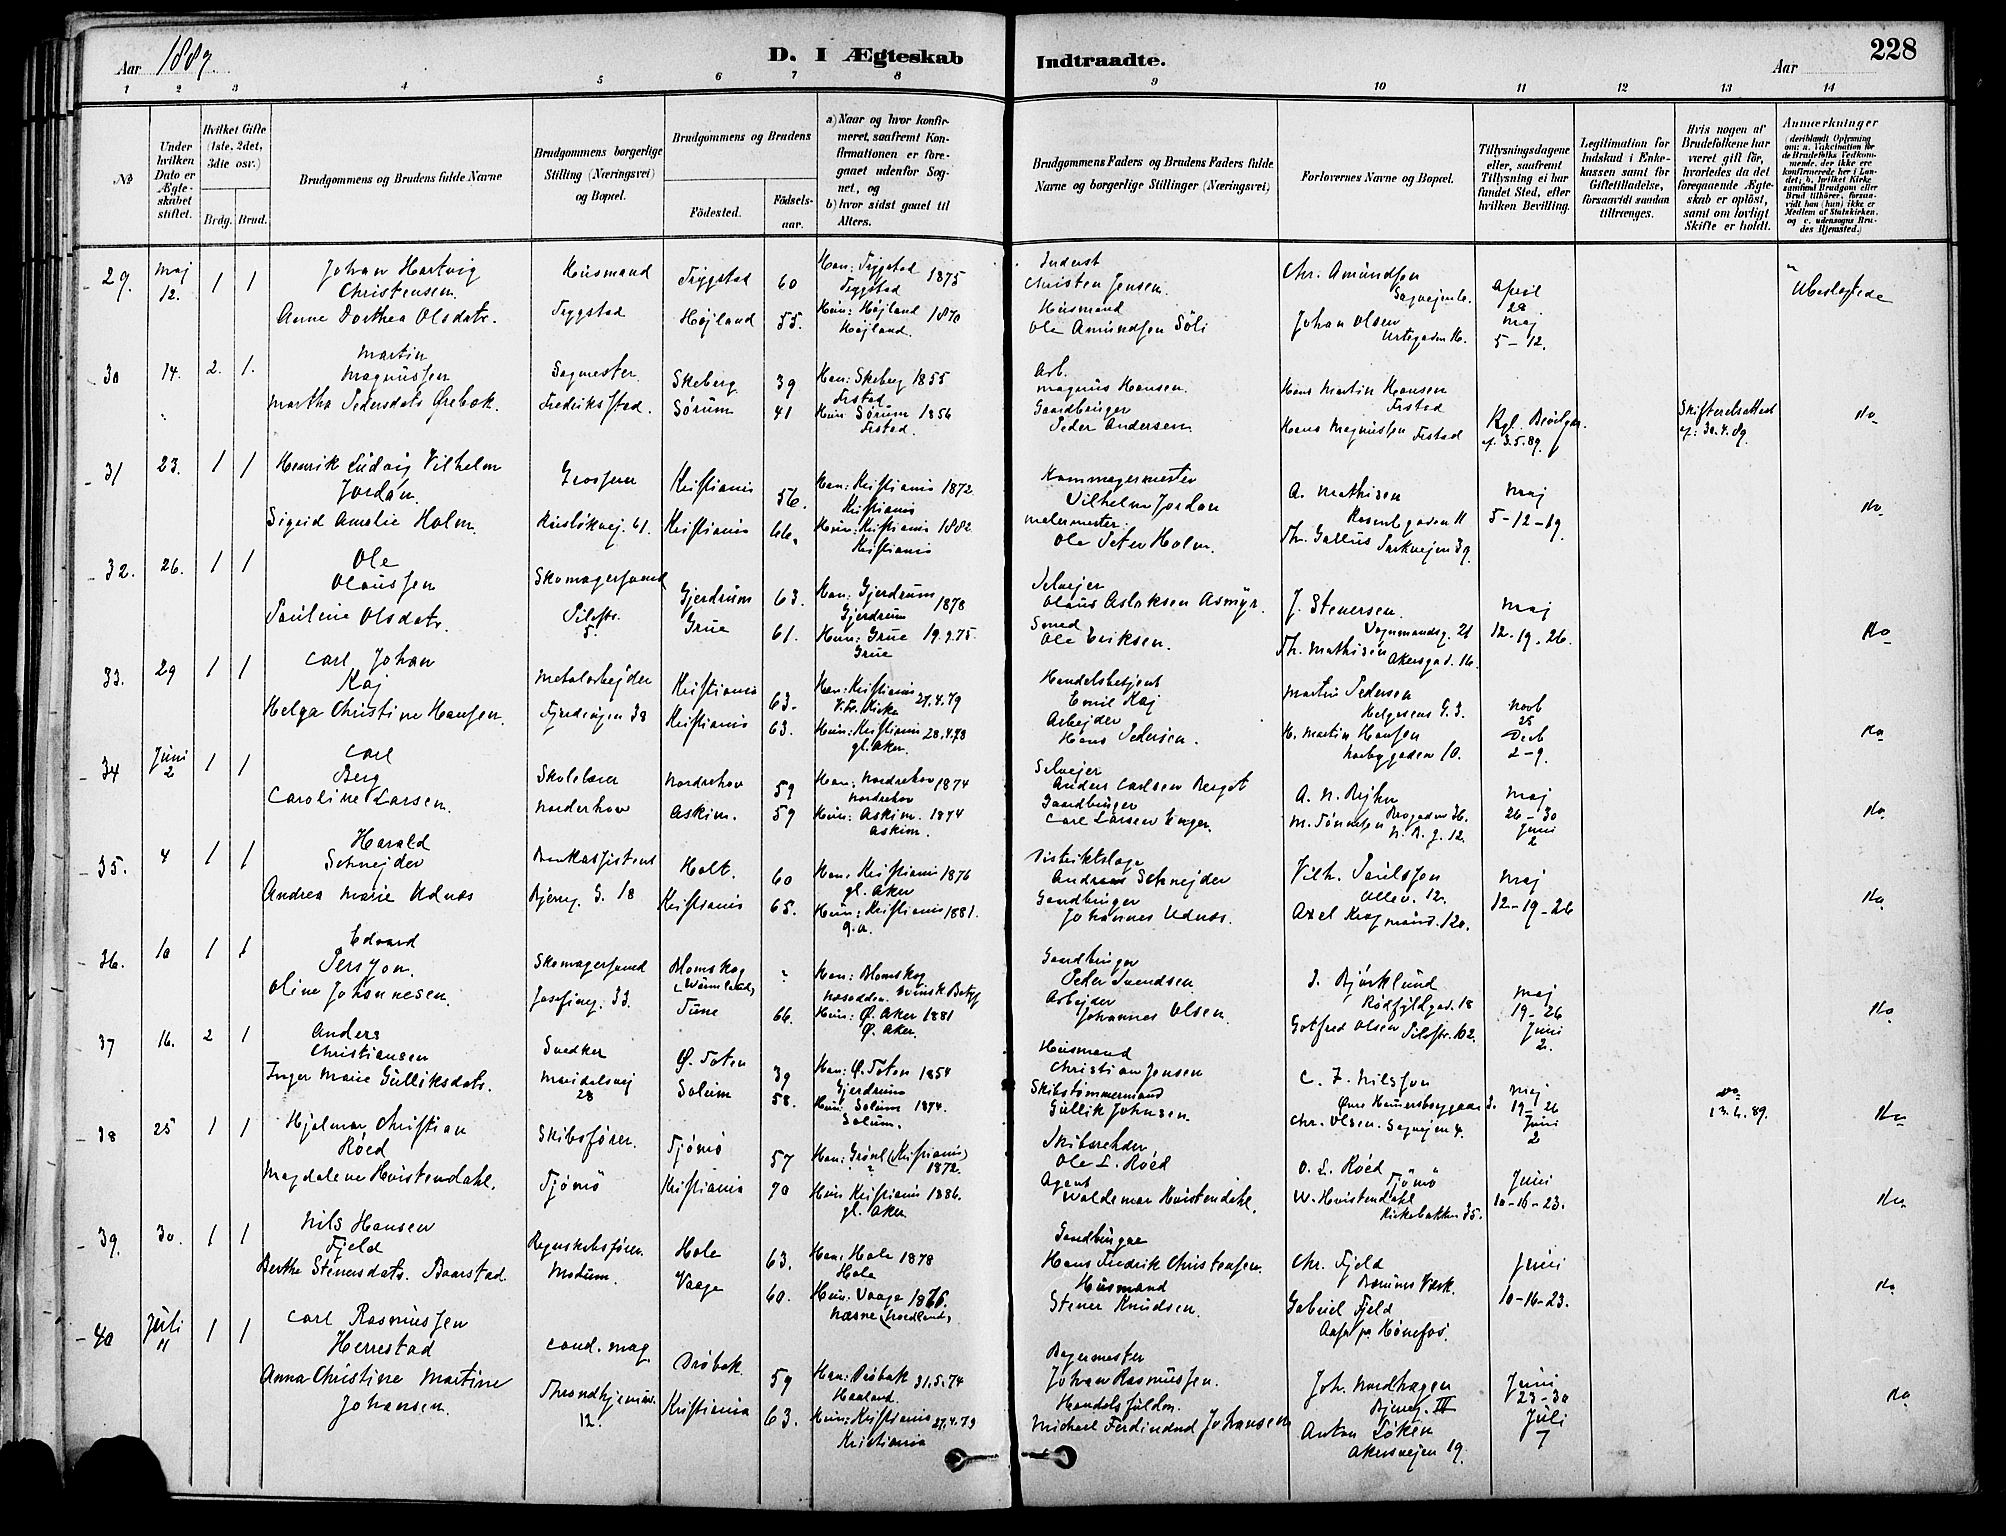 Aar 1889.
D. I Ægteskab Indtraadte.
Aar 228
1 2 3 4 5 6 7 8 9 10 11 12 13 14
No
Under hvilken Dato er Ægteskabet stiftet.
Hvilket Gifte (1ste, 2det, 3die osv.)
Brdg. Brud.
Brudgommens og Brudens fulde Navne
Brudgommens borgerlige Stilling (Næringsvei) og Bopæl.
Brudgommens og Brudens
Fødested.
Fødselsaar.
a) Naar og hvor konfirmeret, saafremt Konfirmationen er foregaaet udenfor Sognet, og
b) hvor sidst gaaet til Alters.
Brudgommens Faders og Brudens Faders fulde Navne og borgerlige Stillinger (Næringsvei)
Forlovernes Navne og Bopæl.
Tillysningsdagene eller, saafremt Tillysning ei har fundet Sted, efter hvilken Bevilling.
Legitimation for Indskud i Enkekassen samt for Giftetilladelse, forsaavidt saadan tiltrænges.
Hvis nogen af Brudefolkene har været gift før, hvorledes da det foregaaende Ægteskab er opløst, samt om lovligt Skifte er holdt.
Anmerkninger
(deriblandt Oplysning om: a. Vakcination for de Brudefolks Vedkommende, der ikke ere konfirmerede her i Landet; b. hvilket Kirkesamfund Brudgom eller Brud tilhører, forsaavidt han (hun) ikke er Medlem af Statskirken, og c. udensogns Brudes Hjemsted.)
29. Maj 12. 1 1
Johan Hartvig Christensen.
Anne Dorthea Olsdatr.
Husmand
Trygstad
Trygstad 60
Højland 55.
Han: Trygstad 1875
Trygstad
Hun: Højland 1870
Højland.
Inderst
Christen Jensen.
Husmand
Ole Amundsen Søli
Chr. Amundsen
Sagvejen
Johan Olsen
Urtegaden 16.
April 28
Maj 5-12.
Ubeslægtede
30 14. 2. 1.
Martin Magnussen
Martha Pedersdatr Ørebæk.
Sagmester
Fredriksstad.
Skeberg 39
Sørum 41
Han: Skeberg 1855
Frstad
Hun Sørum 1856
Frstad.
Arb.
Magnus Hansen.
Gaardbruger
Peder Andersen
Hans Martin Hansen
Frstad
Hans Magnussen Frstad
Kgl. Bevilgn.
af 3.5.89.
Skifteretsattest
af: 30.4.89.
do
31 23. 1 1
Henrik Ludvig Vilhelm Jordan.
Sigrid Amalie Holm.
Grosserer
Ruseløkvej. 61.
Kristiania 56.
Kristiania 66.
Han: Kristiania 1872
Kristiania
Hun: Kristiania 1882
Kristiania
Kammagermester
Vilhelm Jordan
Malermester
Ole Peter Holm.
A. Mathisen
Rosenbgaden 11
Th. Gallus Parkvejen 39.
Maj
5-12-19.
do
32. 26. 1 1
Ole Olaussen
Pauline Olsdatr.
Skomagersvend
Pilestr. 5.
Gjerdrum 63.
Grue 61.
Han: Gjerdrum 1878
Gjerdrum
Hun: Grue 19.9.75.
Grue
Selvejer
Olaus Aslaksen Asmyr.
Smed
Ole Eriksen.
J. Stenersen.
Vognmandsg. 21
Th. Mathisen Akersgad. 16.
Maj
12-19-26.
do
33. 29 1 1
Carl Johan Kaj
Helga Christine Hansen.
Metalarbejder
Fjerdingen 38
Kristiania 63.
Kristiania 63.
Han: Kristiania 27.4.79
V. Fr. Kirke
Hun: Kristiania 28.4.78
gl. Aker.
Handelsbetjent
Emil Kaj
Arbejder
Hans Pedersen.
Martin Pedersen
Helgesens G. 3.
H. Martin Hansen
Norbygaden 10.
Novb 25
Decb 2-9.
do
34 Juni 2 1 1
Carl Berg
Caroline Larsen.
Skolelærer
Norderhov
Norderhov 59
Askim. 59
Han: Norderhov 1874
Norderhov
Hun: Askim. 1874
Askim.
Selvejer
Anders Carlsen Berget
Gaardbruger
Carl Larsen Enger.
A. N. Bejhn
M. Tønnesen
Maj
26-30
Juni 2
do
35. 4 1 1
Harald Schnejder
Andrea Marie Udnæs
Bankassistent
Bjerreg. G. 18
Holt. 60
Kristiania 65.
Han: Kristiania 1876
gl. Aker
Hun: Kristiania 1881.
g. a.
Distriktslæge
Andreas Schnejder
Gaardbruger
Johannes Udnæs.
Vilh. Paulsson
Ullev. 12.
Axel Krag
Maj
12-19-26
do
36. 10 1 1
Edvard Persson.
Oline Johannesen.
Skomagersvend
Josefineg. 33.
Blomskog
(Wärmland)
Tune 66.
Han: Blomskog
Næsodden. Svensk Betyg
Hun: Ø. Aker 1881
Ø. Aker.
Gaardbruger
Peder Svendsen
Arbejder
Johannes Olsen.
J. Bjørklund
Rødfyldgad. 18
Gotfred Olsen Pilestr. 102.
Maj
19-26
Juni 2.
do
37 16. 2 1
Anders Christiansen
Inger Marie Gulliksdatr.
Snedker
Maridalsvej 28
Ø. Toten 39
Solum 58.
Han: Ø. Toten 1854
Gjerdrum
Hun: Solum 1874.
Solum.
Husmand
Christian Jensen
Skibstømmermand
Gullik Johnsen.
C. F. Nilsson
Øvre Hammersborggade 3.
Chr. Olsen. Sagvejen 4.
Maj
19-26
Juni 2
do
13.4.89.
do
38 25 1 1
Hjalmar Christian Røed
Magdalene Hvistendahl.
Skibsfører.
Tjømø
Tjømø 57
Kristiania 70
Han: Grønl. (Kristiania) 1872.
Hun Kristiania 1886.
gl. Aker
Skibsreder
Ole L. Røed
Agent
Waldemar Hvistendahl.
O. L. Røed
Tjømø
W. Hvistendahl
Kirkebakken 35.
Juni
10-16-23.
do
39. 30. 1 1
Nils Hansen Fjeld
Berthe Stenersdatr. Baarstad.
Regnskabsfører
Modum.
Hole 63.
Vaage 60.
Han: Hole 1878
Hole
Hun: Vaage 1876.
Næsne (Nordland)
Gaardbruger
Hans Fredrik Christensen.
Husmand
Stener Knudsen.
Chr. Fjeld
Bærums Værk.
Gabriel Fjeld
Aasa pr. Hønefos.
Juni
10-16-23.
do
40 Juli 11 1 1
Carl Rasmussen Herrestad
Anna Christine Martine Johansen.
cand. mag.
Throndhjemsv. 12.
Drøbak 59
Kristiania 63.
Han: Drøbak 31.5.74
Haaland
Hun: Kristiania 27.4.79
Kristiania
Bagermester
Johan Rasmussen.
Handelsfuldm.
Michael Ferdinand Johansen
Joh. Nordhagen
Bjerreg. III
Anton Løken
Akersvejen 19.
Juni
23-30
Juli 7
do